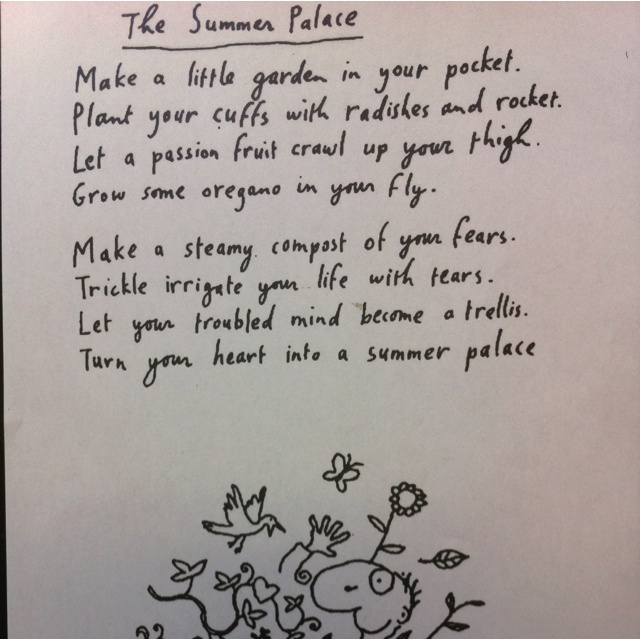 The Summer Palace
Make a little garden in your pocket.
Plant your cuffs with radishes and rocket.
Let a passion fruit crawl up your thigh.
Grow some oregano in your fly.
Make a steamy compost of your fears.
Trickle irrigate your life with tears.
Let your troubled mind become a trellis.
Turn your heart into a summer palace